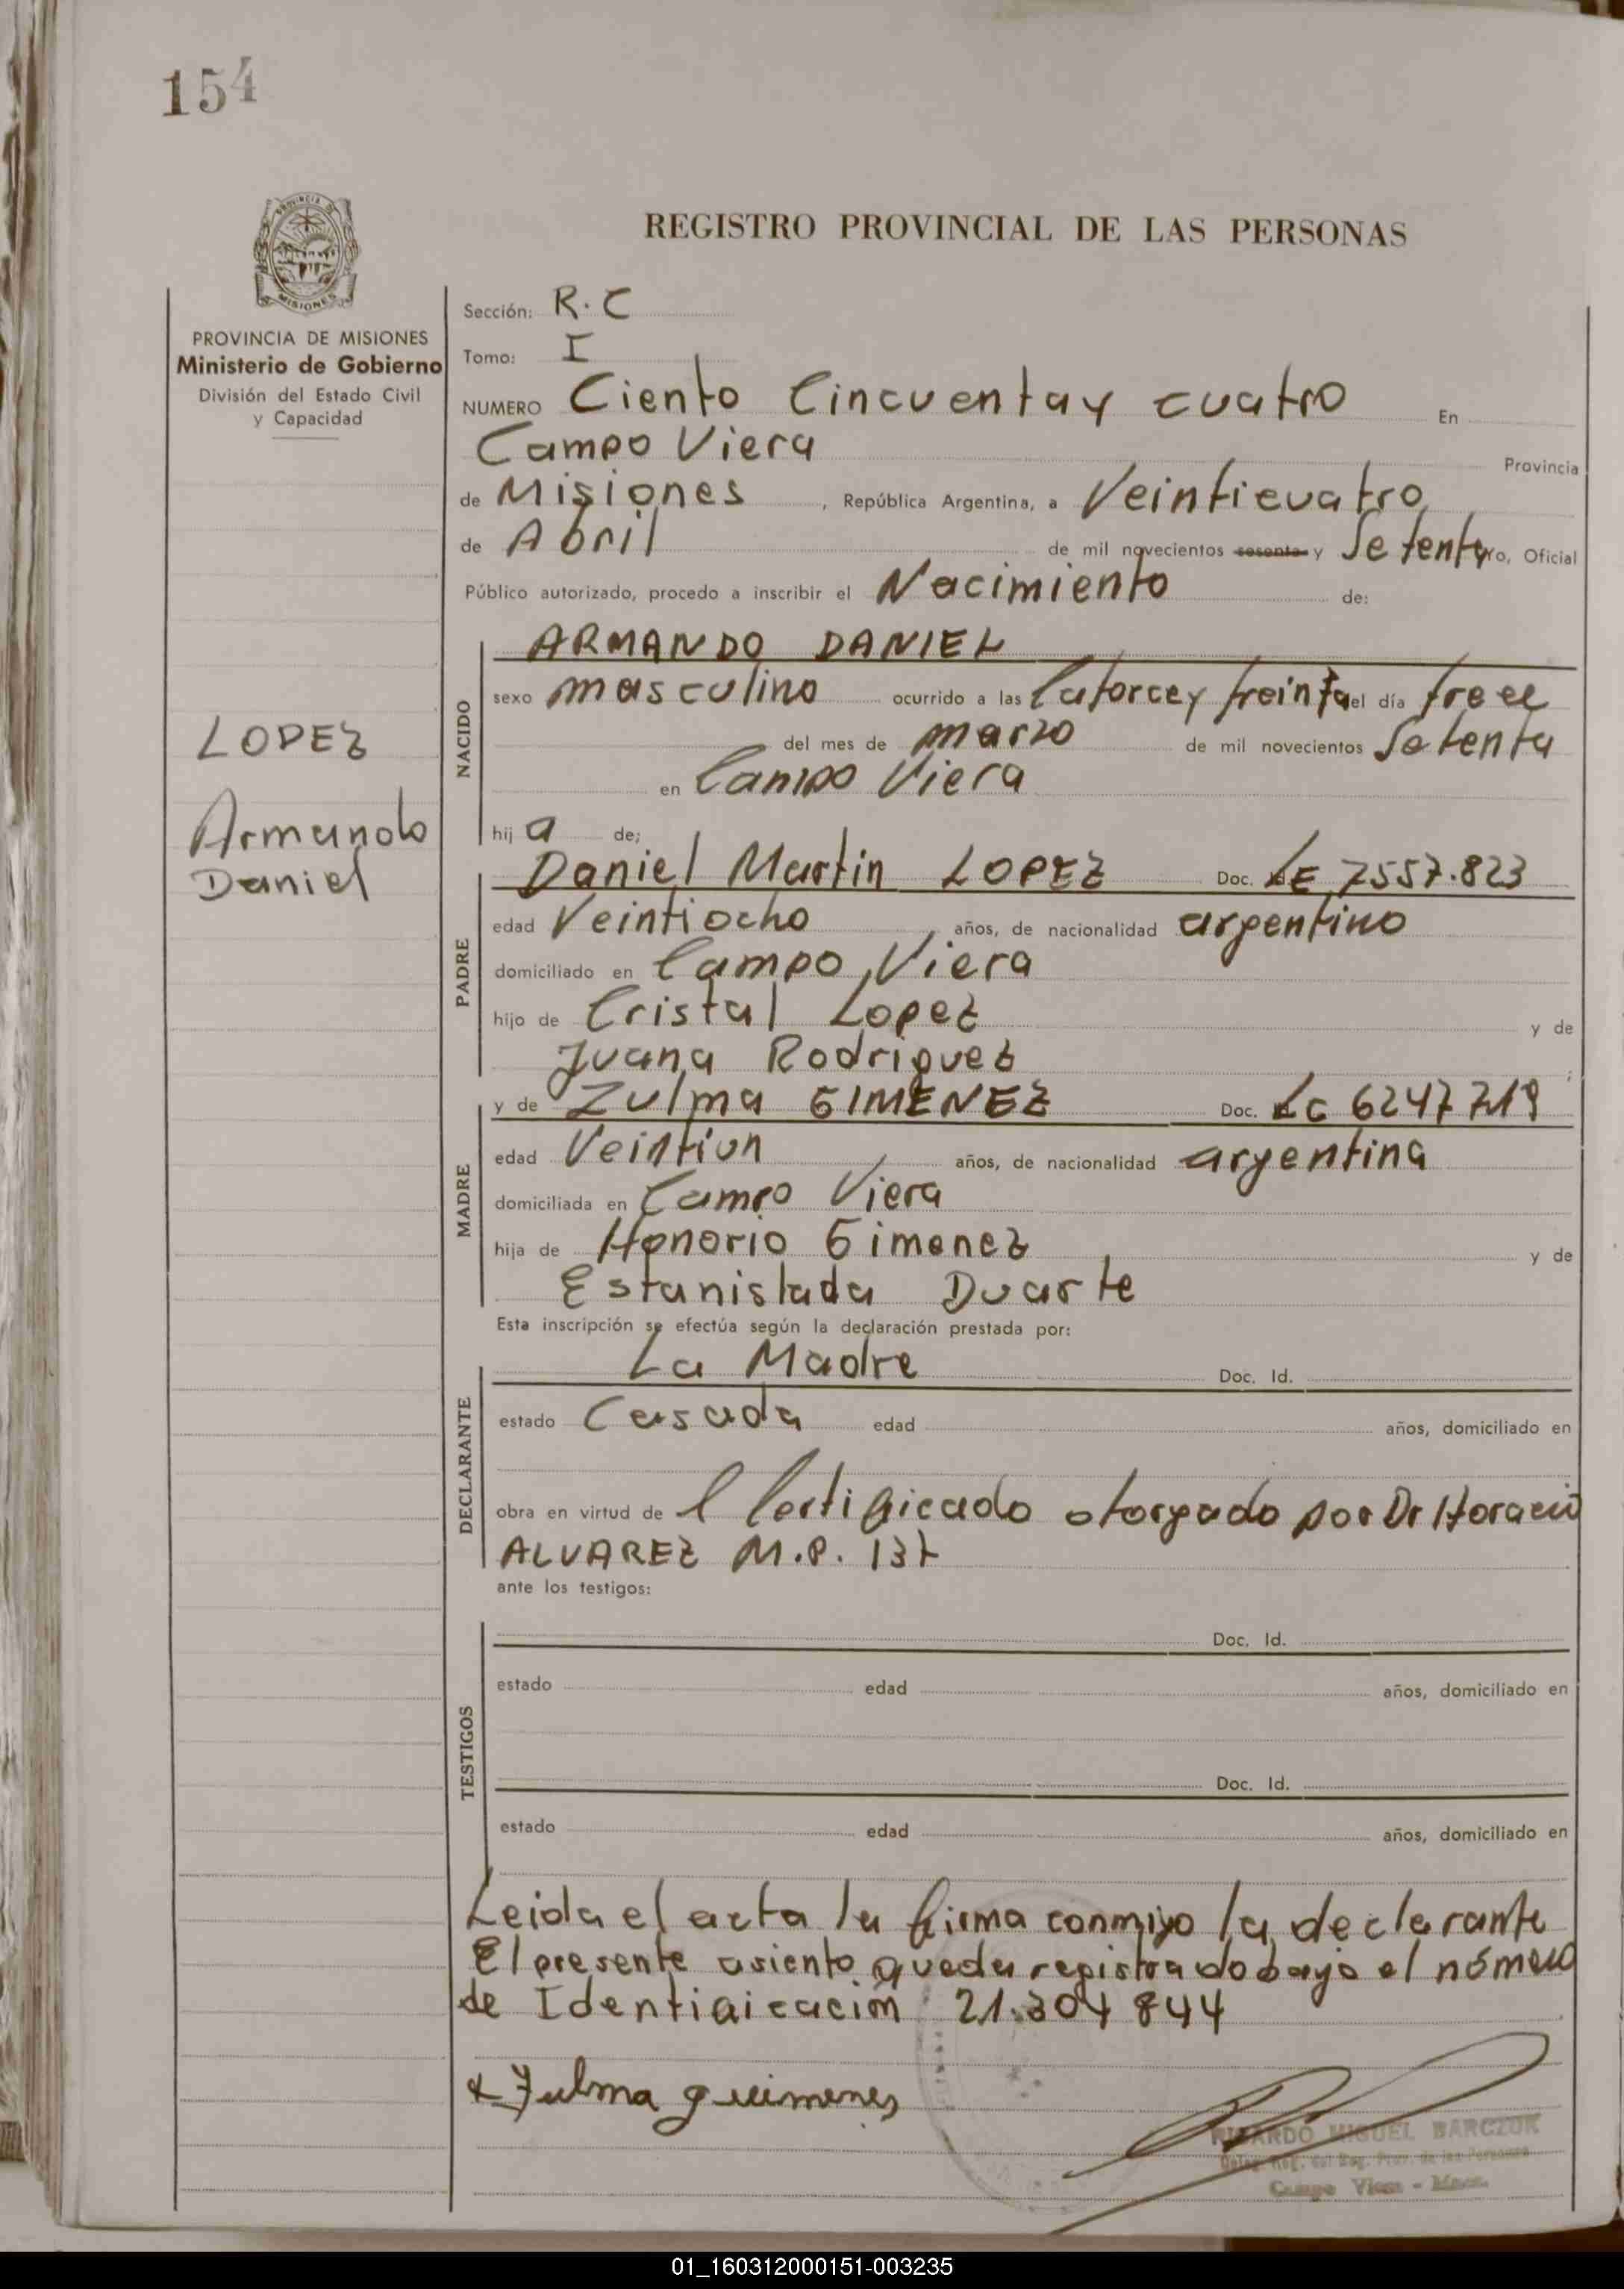 154
PROVINCIA DE MISIONES
PROVINCIA DE MISIONES
Ministerio de Gobierno
División del Estado Civil
y Capacidad
LOPEZ
Armando
Daniel
REGISTRO PROVINCIAL DE LAS PERSONAS
Sección: R.C
Tomo: I
NUMERO Ciento Cincuenta y cuatro En
Campo Viera Provincia
de Misiones, República Argentina, a Veinticuatro
de Abril de mil novecientos sesenta y Setenta Yo, Oficial
Público autorizado, procedo a inscribir el Nacimiento de:
NACIDO
ARMANDO DANIEL
sexo masculino ocurrido a las Catorce y treinta el día trece
del mes de marzo de mil novecientos Setenta
en Campo Viera
hij a de;
PADRE
Daniel Martin LOPEZ Doc. LE 7557.823
edad Veintiocho años, de nacionalidad argentino
domiciliado en Campo Viera
hijo de Cristal Lopez y de
Juana Rodriguez ;
MADRE
y de Zulma GIMENEZ Doc. LC 6247719
edad Veintiun años, de nacionalidad argentina
domiciliada en Campo Viera
hija de Honorio Gimenez y de
Estanislada Duarte
Esta inscripción se efectúa según la declaración prestada por:
DECLARANTE
La Madre Doc. Id.
estado Casada edad años, domiciliado en
obra en virtud de l Certificado otorgado por Dr Horacio
ALVAREZ M.P. 137
ante los testigos:
TESTIGOS
Doc. Id.
estado edad años, domiciliado en
Doc. Id.
estado edad años, domiciliado en
Leida el acta la firma conmigo la declarante
El presente asiento queda registrado bajo el número
de Identificación 21.304 844
Zulma guimenes
RICARDO MIGUEL BARCZUK
Deleg. Reg. del Reg. Prov. de las Personas
Campo Viera - Mnes.
01_160312000151-003235